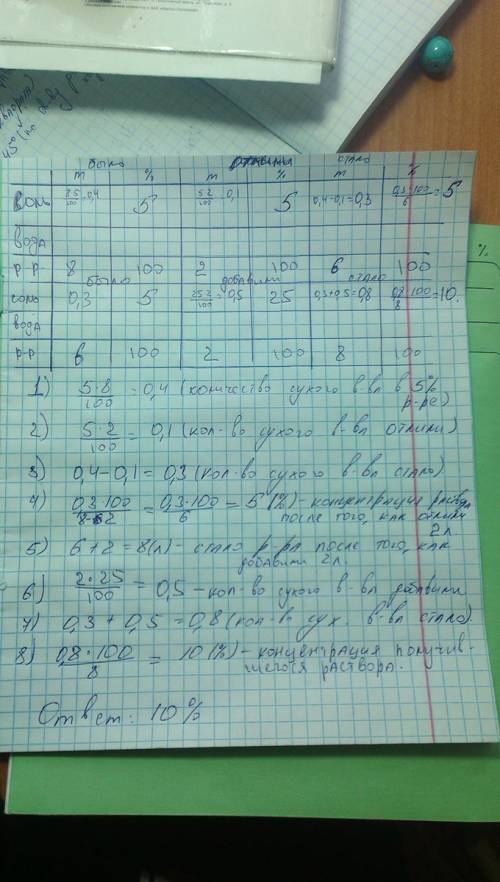 было отлили стало
m % m % m %
соль 5·8/100=0,4 5 5·2/100=0,1 5 0,4-0,1=0,3 0,3·100/6=5
вода
р-р 8 100 2 100 6 100
было добавили стало
соль 0,3 5 25·2/100=0,5 25 0,3+0,5=0,8 0,8·100/8=10.
вода
р-р 6 100 2 100 8 100
1) 5·8/100 = 0,4 (количество сухого в-ва в 5%
р-ре)
2) 5·2/100 = 0,1 (кол-во сухого в-ва отлили)
3) 0,4-0,1=0,3 (кол-во сухого в-ва стало)
4) 0,3·100/8-2 = 0,3·100/6 = 5 (%) - концентрация
после того, как отлили
2л
5) 6+2=8(л) - стало р-ра после того, как
добавили 2л.
6) 2·25/100 = 0,5 - кол-во сухого в-ва добавили
7) 0,3+0,5=0,8 (кол-во сух. в-ва стало).
8) 0,8·100/8 = 10(%) - концентрация получив-
шегося раствора.
Ответ: 10%